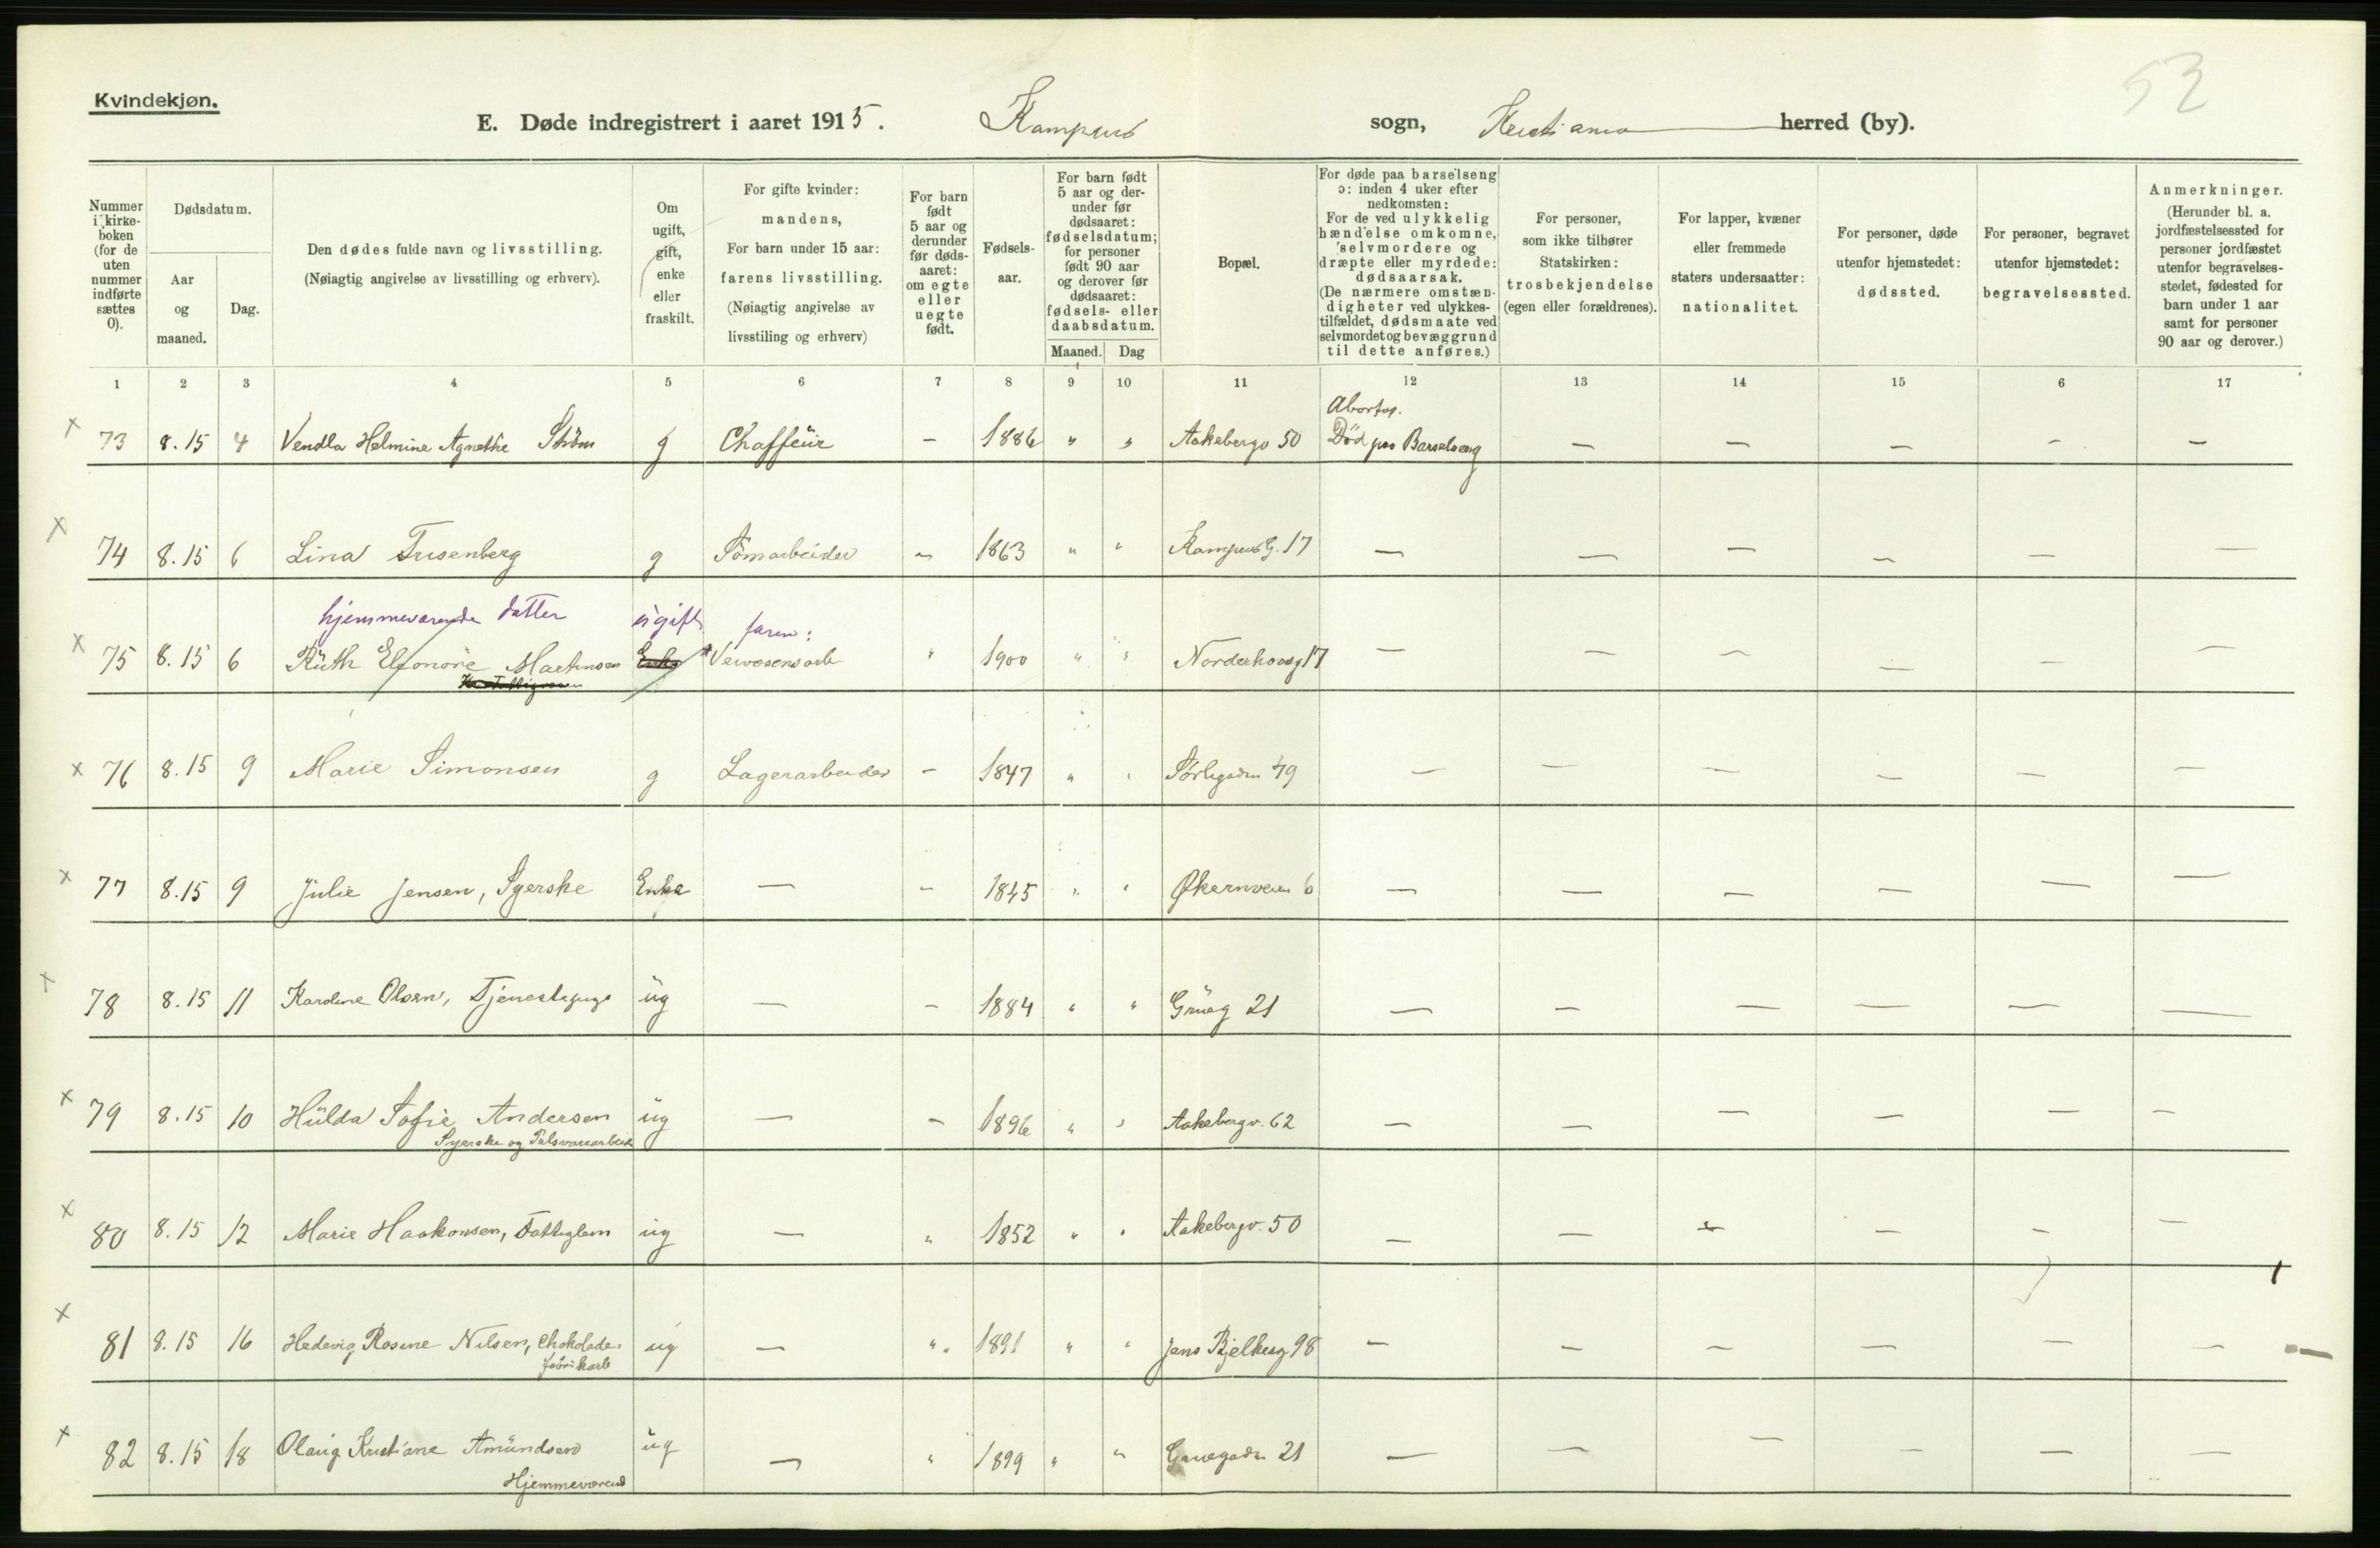 Kvindekjøn.
53
E. Døde indregistrert i aaret 1915. Kampens sogn, Kristiania herred (by).
Nummer i kirkeboken (for de uten nummer indførte sættes 0).
Dødsdatum.
Aar og maaned.
Dag.
Den dødes fulde navn og livsstilling.
(Nøiagtig angivelse av livsstilling og erhverv).
Om ugift, gift, enke eller fraskilt.
For gifte kvinder: mandens,
For barn under 15 aar: farens livsstilling.
(Nøiagtig angivelse av livsstiling og erhverv)
For barn født 5 aar og derunder før dødsaaret: om egte eller uegte født.
Fødselsaar.
For barn født 5 aar og derunder før dødsaaret: fødselsdatum; for personer født 90 aar og derover før dødsaaret: fødsels- eller daabsdatum.
Maaned. Dag
Bopæl.
For døde paa barselseng ɔ: inden 4 uker efter nedkomsten:
For de ved ulykkelig hændelse omkomne, selvmordere og dræpte eller myrdede: dødsaarsak.
(De nærmere omstændigheter ved ulykkestilfældet, dødsmaate ved selvmordet og bevæggrund til dette anføres.)
For personer, som ikke tilhører Statskirken: trosbekjendelse (egen eller forældrenes).
For lapper, kvæner eller fremmede staters undersaatter: nationalitet.
For personer, døde utenfor hjemstedet: dødssted.
For personer, begravet utenfor hjemstedet: begravelsessted.
Anmerkninger.
(Herunder bl. a. jordfæstelsessted for personer jordfæstet utenfor begravelsesstedet, fødested for barn under 1 aar samt for personer 90 aar og derover.)
1 2 3 4 5 6 7 8 9 10 11 12 13 14 15 6 17
Abortus.
x 73 8.15 4 Vendla Helmine Agnethe Strøm g Chaffeur – 1886 " " Aakebergv 50 Død paa Barselseng – – – – –
x 74 8.15 6 Lina Trisenberg g Tomarbeider – 1863 " " Kampens G. 17 – – – – – –
hjemmeværende datter ugift faren:
x 75 8.15 6 Ruth Elfonore Martinsen Enke Veivæsensarb " 1900 " " Norderhovsg 17 – – – – – –
x 76 8.15 9 Marie Simonsen g Lagerarbeider – 1847 " " Sørligaden 79 – – – – – –
x 77 8.15 9 Julie Jensen, Syerske Enke – – 1845 " " Økernveien 6 – – – – – –
x 78 8.15 11 Karoline Olsen, Tjenestepige ug – – 1884 " " Grüeg 21 – – – – – –
x 79 8.15 10 Hulda Sofie Andersen ug – – 1896 " " Aakebergv. 62 – – – – – –
Syerske og Pelsvarearbeid
x 80 8.15 12 Marie Haakonsen, Fattiglem ug – " 1852 " " Aakebergv. 50 – – – – – –
x 81 8.15 16 Hedevig Rosine Nilsen, Chokolade- ug – " 1891 " " Jens Bjelkesg 98 – – – – – –
fabrikarb
x 82 8.15 18 Olaug Kristiane Amundsen ug – " 1899 " " Grüegaden 21 – – – – – –
Hjemmeværend